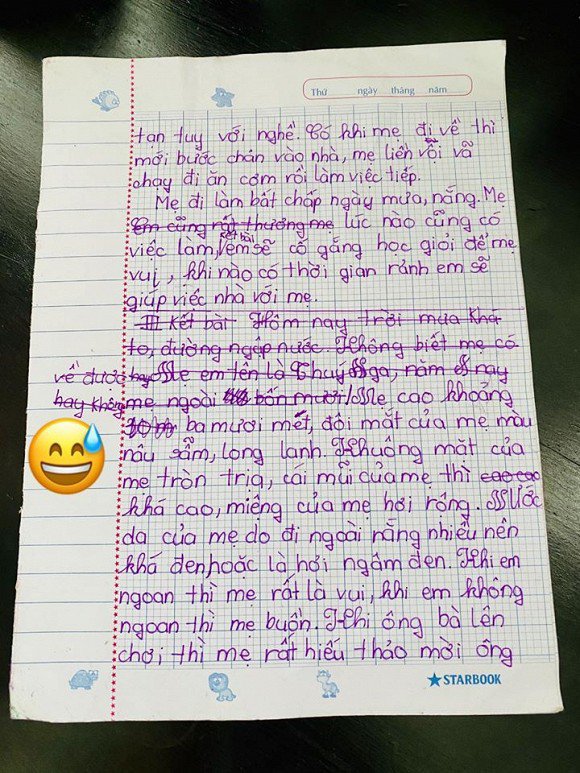 Thứ ngày tháng năm
tan tuy với nghề. Có khi mẹ đi về thì
mới bước chân vào nhà, mẹ liền vồi vã
chạy đi ăn cơm rồi làm việc tiếp.
Mẹ đi làm bất chấp ngày mưa, nắng. Mẹ
Em cũng rất thương mẹ lúc nào cũng có
việc làm, em sẽ cố gắng học giỏi để mẹ
vui, khi nào có thời gian rảnh em sẽ
giúp việc nhà với mẹ.
III Kết bài Hôm nay trời mưa khá
to, đường ngập nước. Không biết mẹ có
về được hay Mẹ em tên là Thuý Nga, năm nay
hay không mẹ ngoài bốn mươi Mẹ cao khoảng
ba mươi mét, đôi mắt của mẹ màu
nâu sẫm, long lanh. Khuông mặt của
mẹ tròn trịa, cái mũi của mẹ thì cao cao
khá cao, miệng của mẹ hơi rồng. Nước
da của mẹ do đi ngoài nắng nhiều nên
khá đen, hoặc là hơi ngâm đen. Khi em
ngoan thì mẹ rất là vui, khi em không
ngoan thì mẹ buồn. Khi ông bà lên
chơi thì mẹ rất hiếu thảo mời ông
STARBOOK